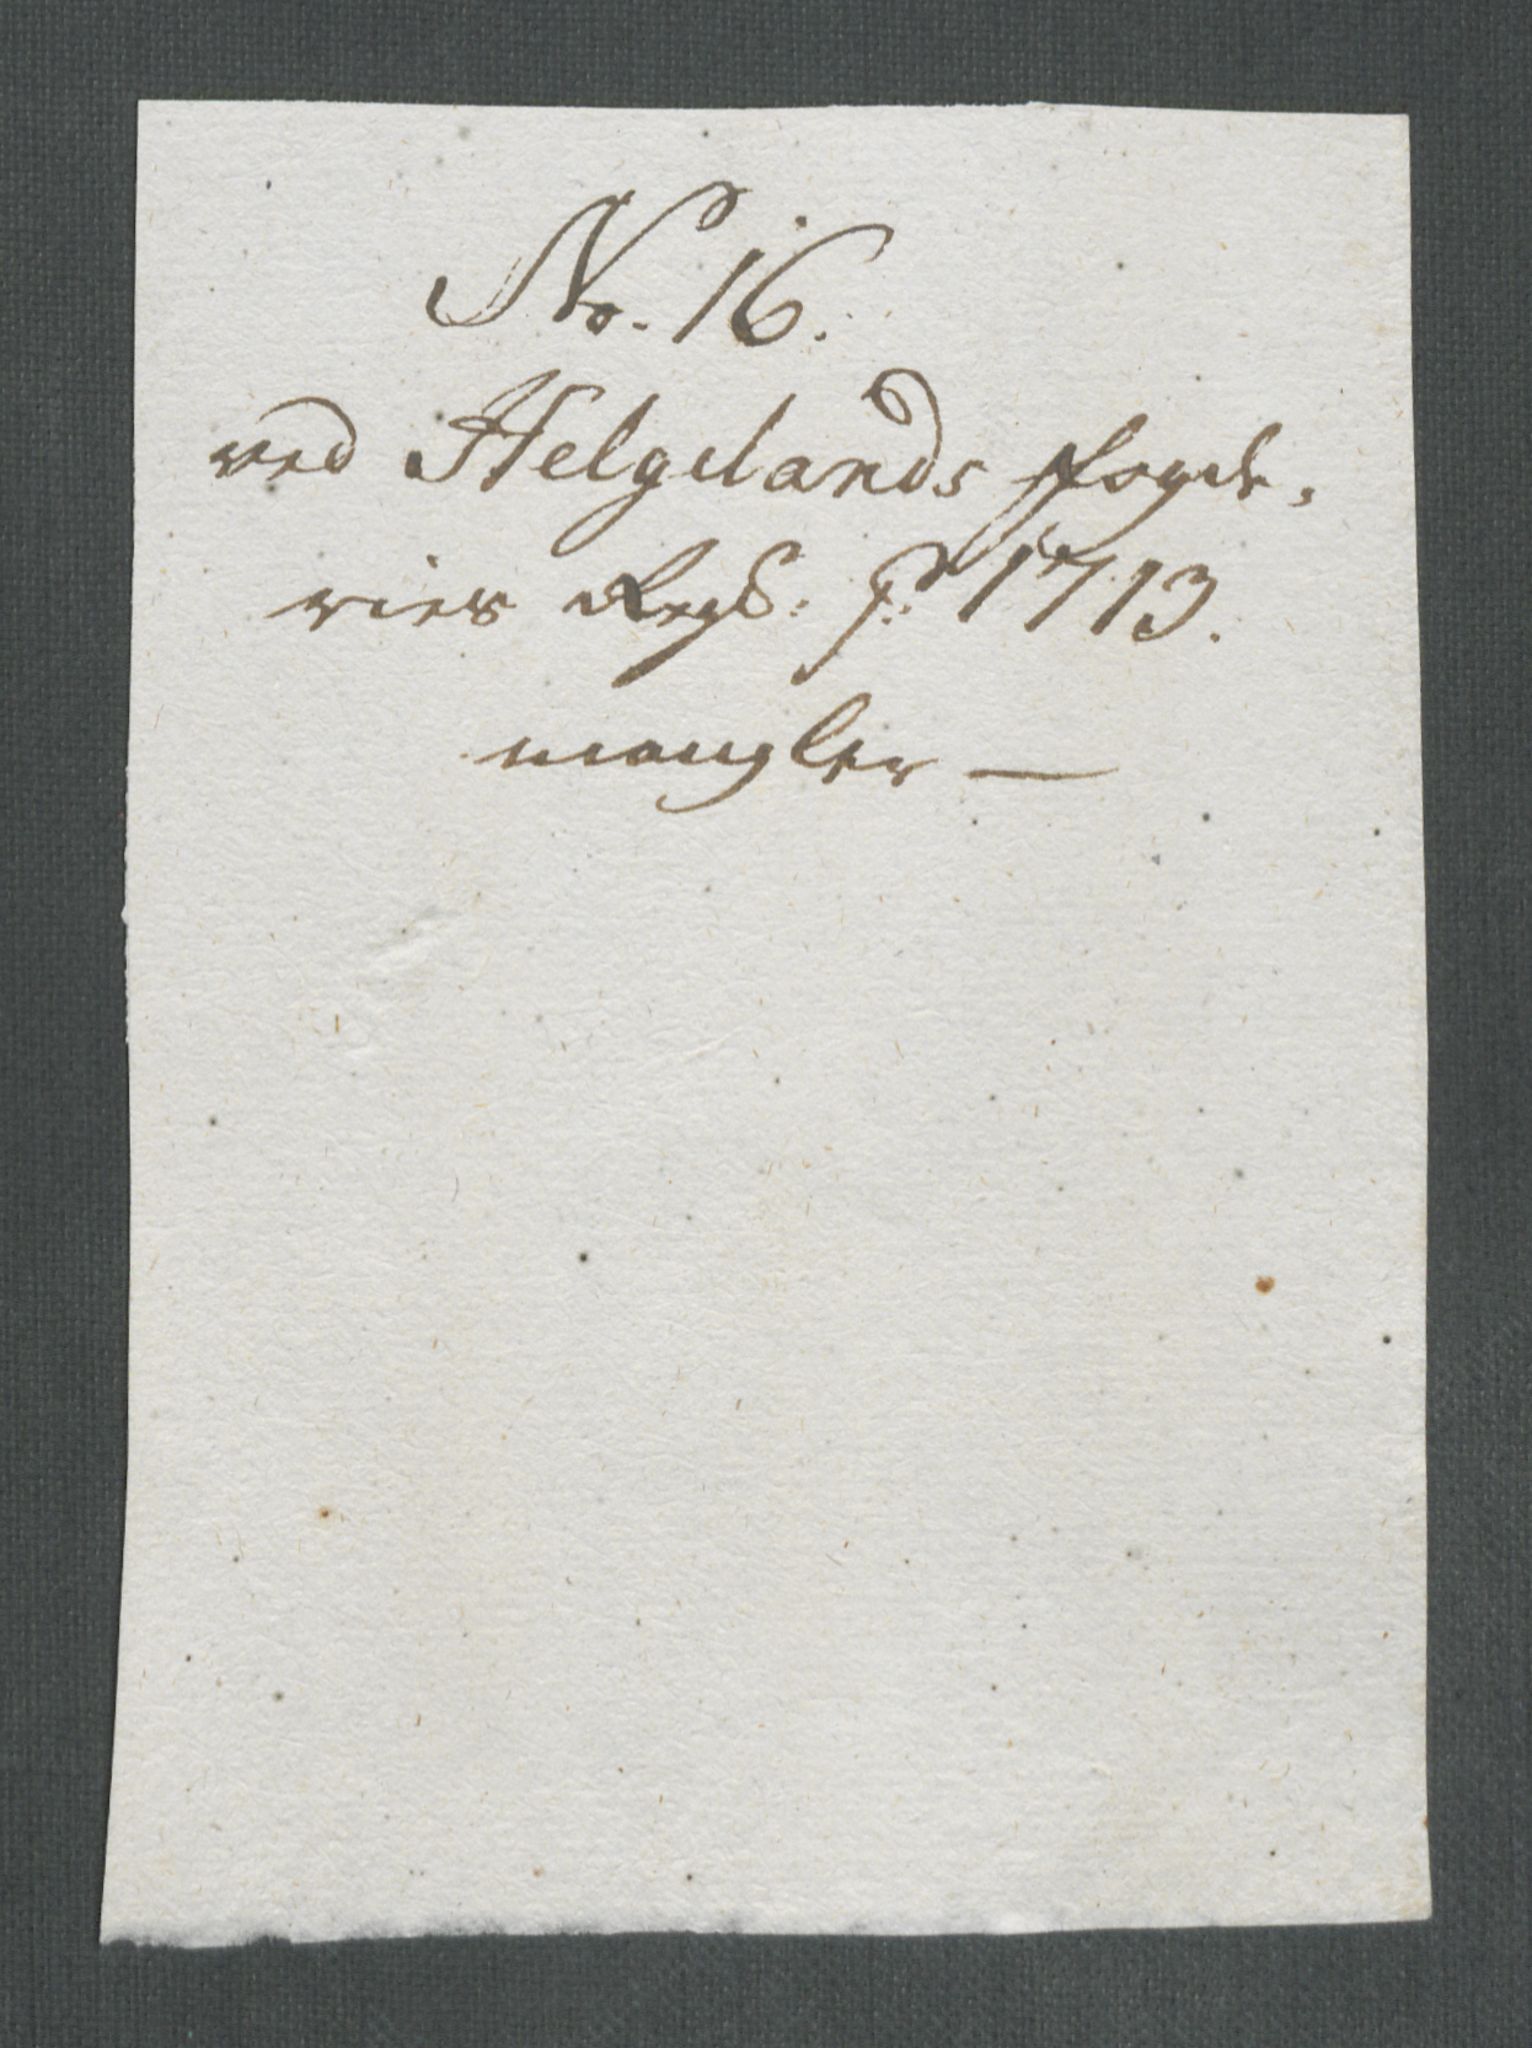 No. 16.
ved Helgelands Fogde,
ries Regs: p: 1713.
mangler —